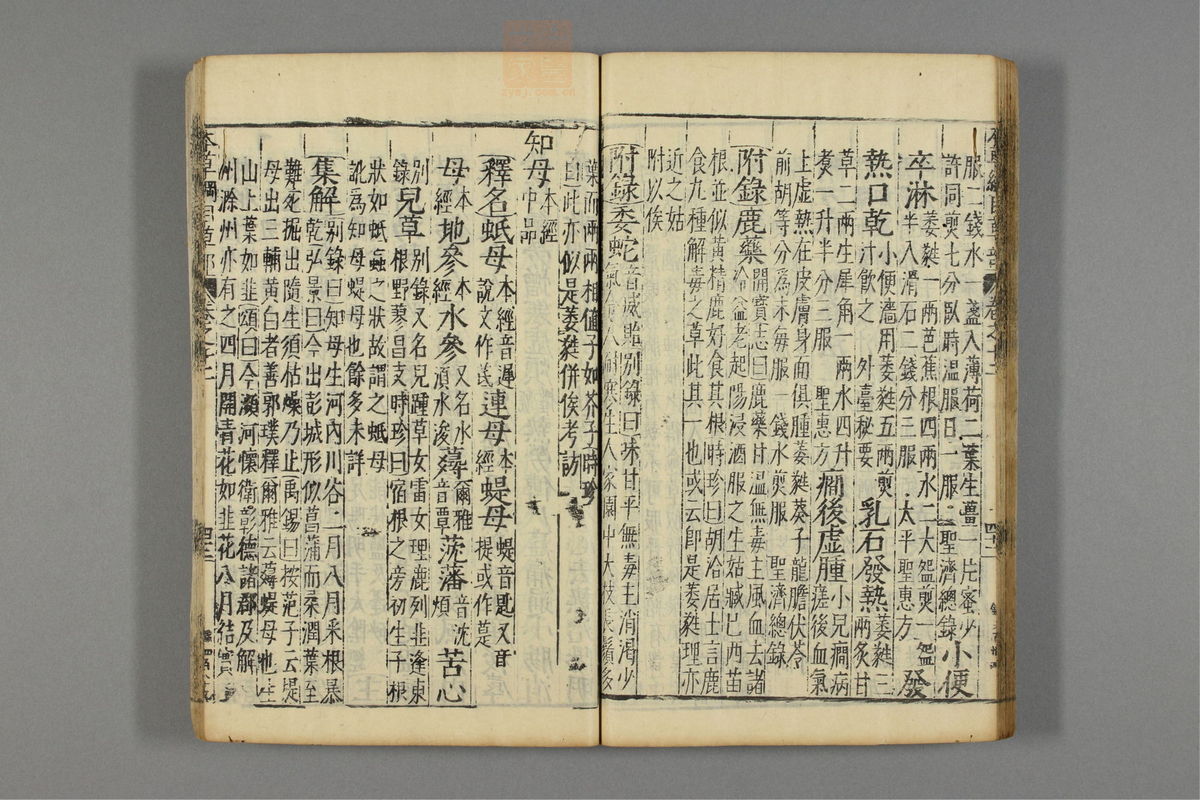 服二錢水一盞入薄荷二葉生薑一片蜜少
許同煎七分臥時溫服日一服聖濟總錄小便
卒淋萎蕤一兩芭蕉根四兩水二大盌煎一盌
半入滑石二錢分三服太平聖惠方發
熱口乾小便濇用萎蕤五兩煎
汁飲之外臺秘要乳石發熱萎蕤三
兩炙甘
草二兩生犀角一兩水四升
煑一升半分三服聖惠方癎後虛腫小兒癎病
瘥後血氣
上虛熱在皮膚身面俱腫萎蕤葵子龍膽伏苓
前胡等分爲末每服一錢水煎服聖濟總錄
附錄鹿藥開寶志曰鹿藥甘溫無毒主風血去諸
冷益老起陽浸酒服之生姑臧已西苗
根並似黃精鹿好食其根時珍曰胡洽居士言鹿
食九種解毒之草此其一也或云卽是萎蕤理亦
近之姑
附以俟
附錄委蛇音威貽別錄曰味甘平無毒主消渴少
氣令人耐寒生人家園中大枝長鬚多
葉而兩兩相値子如芥子時珍
曰此亦似是萎蕤併俟考訪
知母本經
中品
釋名蚔母本經音遲
說文作芪連母本
經蝭母蝭音匙又音
提或作莡
母本
經地參本
經水參又名水
須水浚蕁爾雅
音覃䒷藩音沈
煩苦心
別
錄兒草別錄又名兒踵草女雷女理鹿列韭逢東
根野蓼昌支時珍曰宿根之旁初生子根
狀如蚔蝱之狀故謂之蚔母
訛爲知母蝭母也餘多未詳
集解別錄曰知母生河內川谷二月八月采根暴
乾弘景曰今出彭城形似菖蒲而柔潤葉至
難死掘出隨生須枯燥乃止禹錫曰按范子云提
母出三輔黃白者善郭璞釋爾雅云蕁蝭母也生
山上葉如韭頌曰今瀕河懷衛彰德諸郡及解
州滁州亦有之四月開青花如韭花八月結實